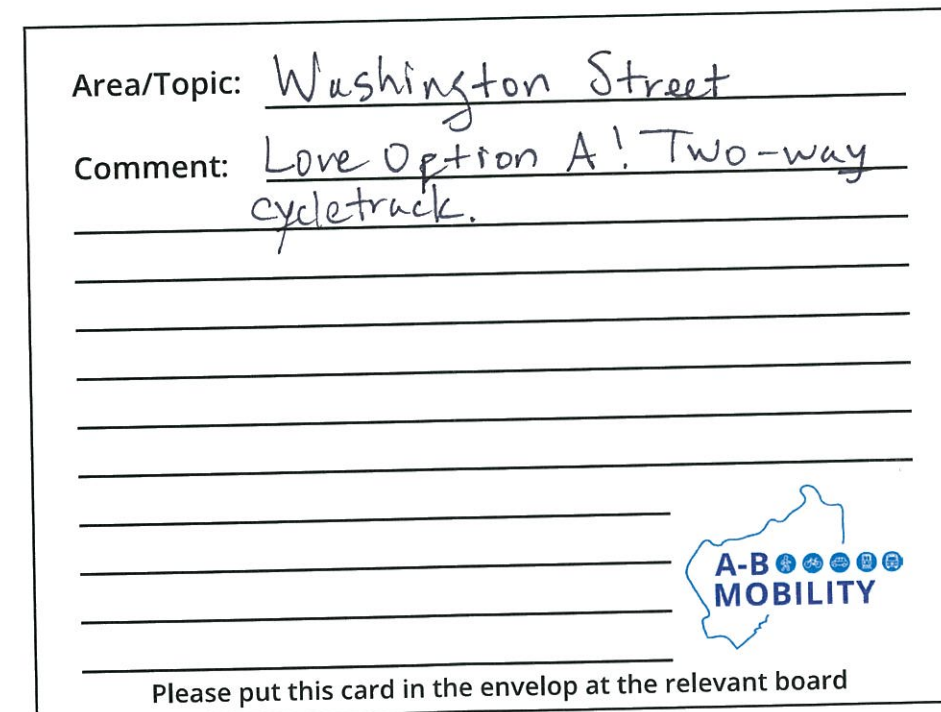 Area/Topic: Washington Street
Comment: Love Option A! Two-way
cycletrack.
A-B
MOBILITY
Please put this card in the envelop at the relevant board